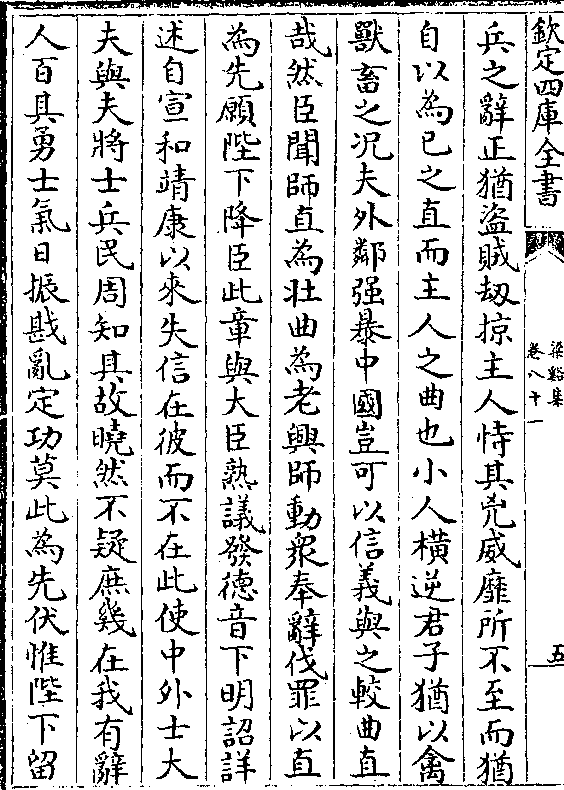 欽定四庫全書
梁谿集
卷八十一
五
兵之辭正猶盜賊刼掠主人恃其兇威靡所不至而猶
自以為已之直而主人之曲也小人橫逆君子猶以禽
獸畜之况夫外鄰强暴中國豈可以信義與之較曲直
哉然臣聞師直為壯曲為老興師動衆奉辭伐罪以直
為先願陛下降臣此章與大臣熟議發德音下明詔詳
述自宣和靖康以來失信在彼而不在此使中外士大
夫與夫將士兵民周知其故曉然不疑庶幾在我有辭
人百其勇士氣日振戡亂定功莫此為先伏惟陛下留